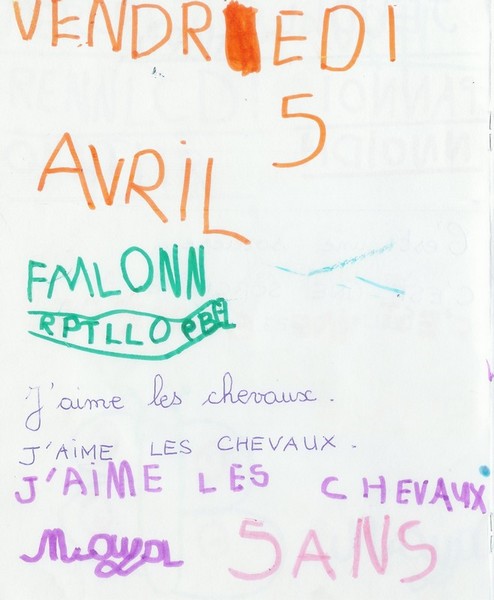 VENDREDI
5
AVRIL
FMLONN
RPTLLO
J'aime les chevaux.
J'AIME LES CHEVAUX.
J'AIME LES CHEVAUX
Maya 5 ANS